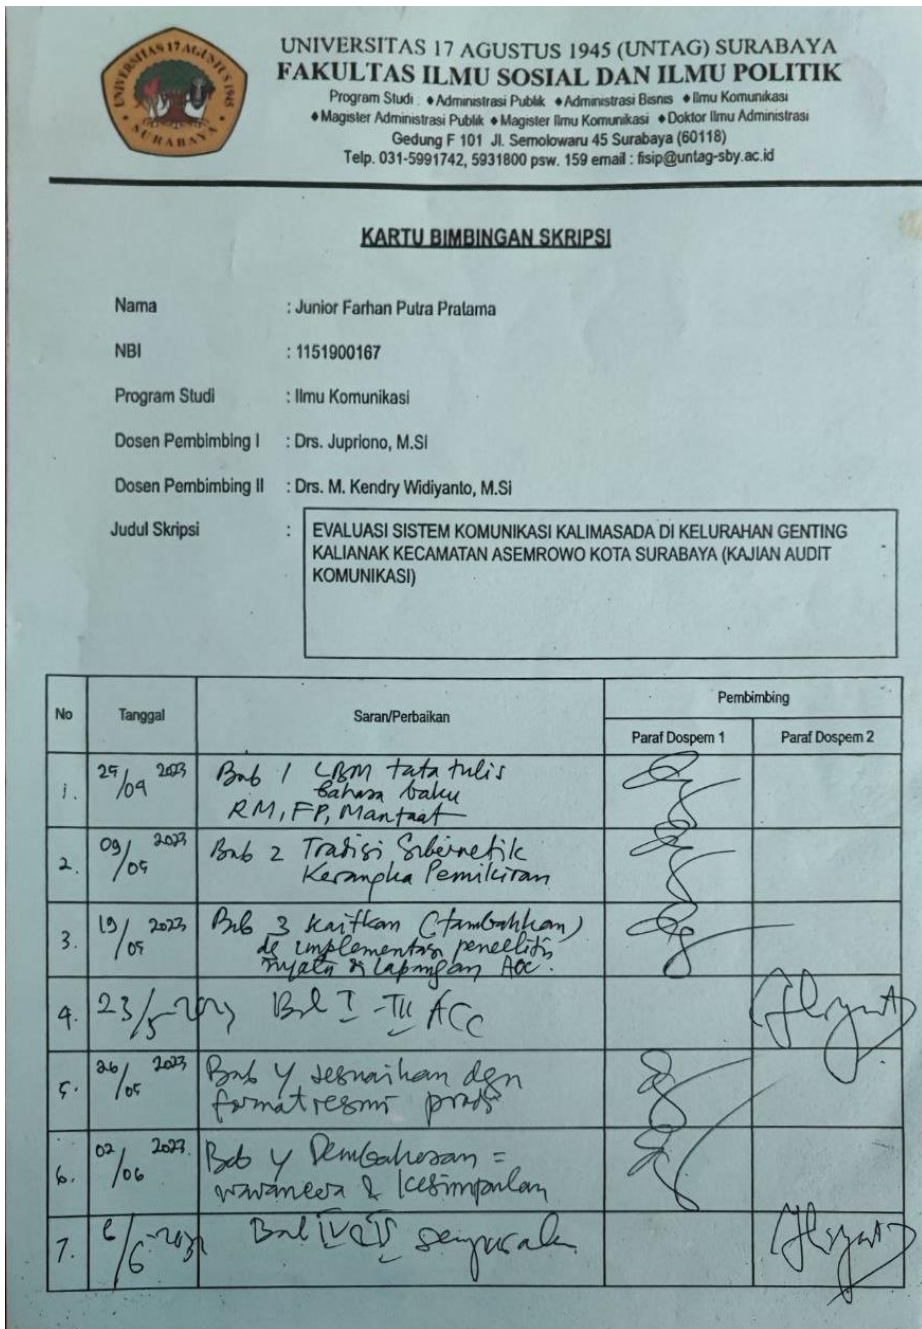 UNIVERSITAS 17 AGUSTUS 1945
SURABAYA
UNIVERSITAS 17 AGUSTUS 1945 (UNTAG) SURABAYA
FAKULTAS ILMU SOSIAL DAN ILMU POLITIK
Program Studi : ♦Administrasi Publik ♦Administrasi Bisnis ♦Ilmu Komunikasi
♦Magister Administrasi Publik ♦Magister Ilmu Komunikasi ♦Doktor Ilmu Administrasi
Gedung F 101 Jl. Semolowaru 45 Surabaya (60118)
Telp. 031-5991742, 5931800 psw. 159 email : fisip@untag-sby.ac.id
KARTU BIMBINGAN SKRIPSI
Nama : Junior Farhan Putra Pratama
NBI : 1151900167
Program Studi : Ilmu Komunikasi
Dosen Pembimbing I : Drs. Jupriono, M.SI
Dosen Pembimbing II : Drs. M. Kendry Widiyanto, M.Si
Judul Skripsi : EVALUASI SISTEM KOMUNIKASI KALIMASADA DI KELURAHAN GENTING
KALIANAK KECAMATAN ASEMROWO KOTA SURABAYA (KAJIAN AUDIT
KOMUNIKASI)
No Tanggal Saran/Perbaikan Pembimbing
Paraf Dospem 1 Paraf Dospem 2
1. 2023 Bab 1 LBM tata tulis
bahasa baku
RM, FP, Manfaat
2. 09/05 2023 Bab 2 Tradisi Sibernetik
Kerangka Pemikiran
3. 19/05 2023 Bab 3 Kaitkan (tambahkan)
dg implementasi
nyata di lapangan
4. 23/5-2023 Bab I - III ACC
5. 26/05 2023 Bab 4 sesuaikan dgn
format resmi prodi
6. 02/06 2023 Bab 4 Pembahasan =
wawancara & kesimpulan
7. 6/6-2023 Bab IV